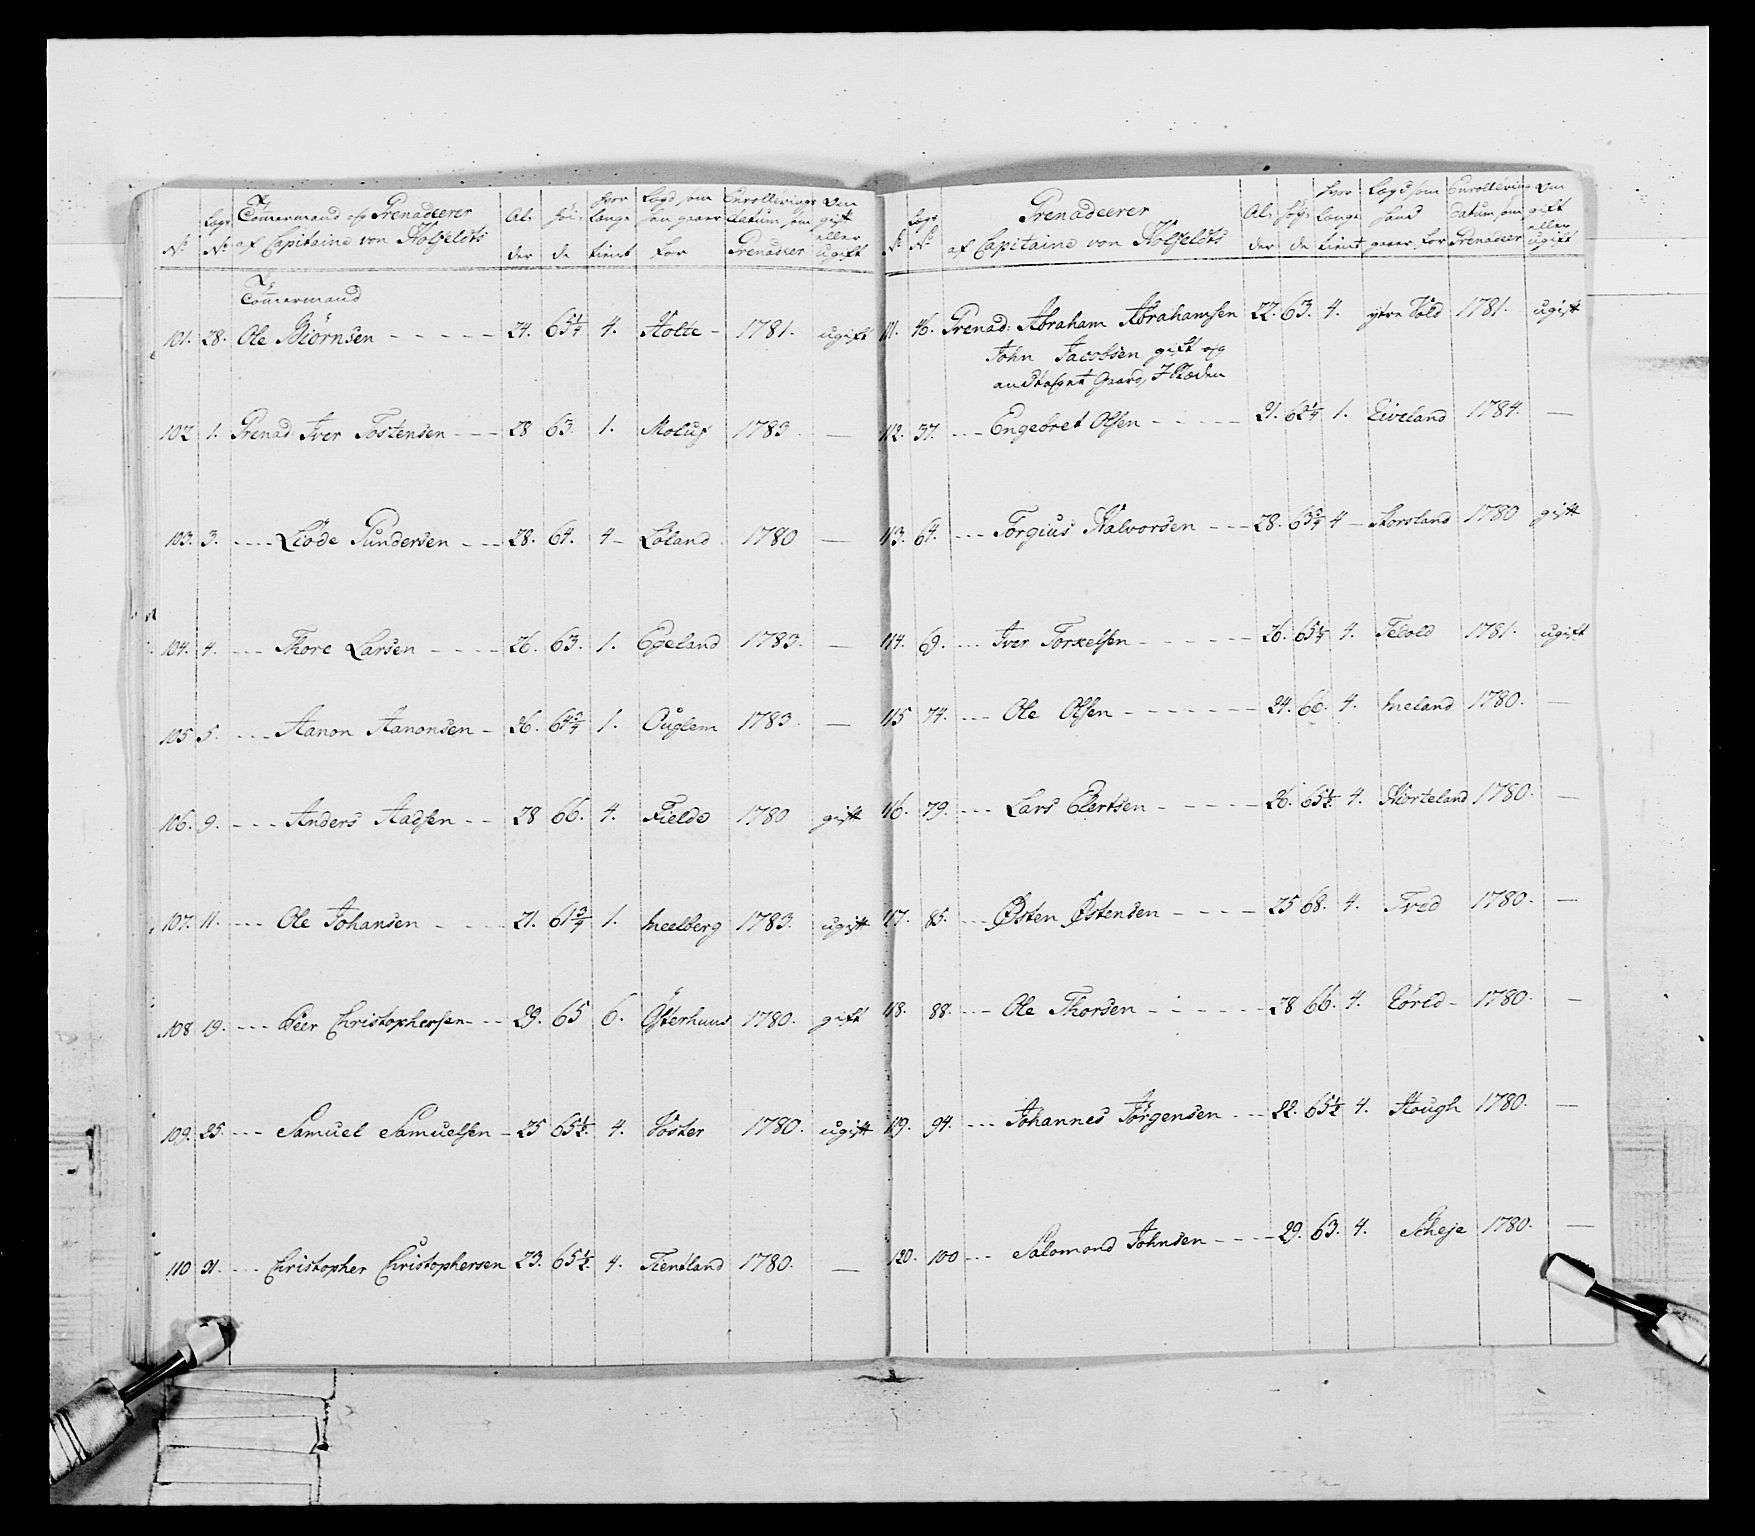 No | Lægs No | Tz Commermand og Grenadeerer af Capitaine von Holfeldts | Alder | Höide | hvor lange tient | Lægd som han gaaer for | Enrollerings datum som Grenadeer | Om gift eller ugift
Tz Commermand
101. 28. Ole Biörnsen - - - - - 24. 65 1/4 4. Holte - 1781. ugift
102 1. Grenad: Iver Tostensen - - - 28 63. 1. 1783. —
103. 3. - - - - Liöde Gundersen - - - 28. 64. 4 - Löland 1780 —
104. 4. - - - Thore Larsen - - - - 26. 63. 1. Egeland 1783. —
105 5. - - - Aanon Aanonsen - 26. 64 3/4 1. Ouglem 1783. —
106. 9. - - - - Anders Aadsen - - 28 66. 4. Fielde 1780 gift
107. 11. - - - Ole Johansen - - - - 21. 61 3/4 1. Meelberg 1783. ugift
108 19. - - - Peer Christophersen - - - 29. 65 6. Österhuus 1780. gift
109. 25. - - - Samuel Samuelsen - 25 65 1/2. 4. 1780. ugift
110 31. - - - Christopher Christophersen 23. 65 1/2. 4. Fientland 1780. —
No | Lægs No | Grenadeerer af Capitaine von Holfeldts | Alder | Höyde | hvor lange tient | Lægd som hand gaaer for | Enrollering datum som Grenadeer | Om gift eller ugift
111. 46. Grenad: Abraham Abrahamsen 22. 63. 4. ytre 1781. ugift
John Jacobsen gift og
Gaard,
112. 37. - - - Engebret Olsen - - - - - 21. 62 1/4 1. Eiveland 1784. —
113. 64. - - - Torgius Halvorsen - - - 28. 63 3/4 4 - Storsland 1780 gift
114. 69. - - - Iver Torkelsen - - - - - - 26. 65 1/4 4. 1781. ugift
115 74. - - - Ole Olsen - - - - - - - 24. 66. 4. Meland 1780. —
116. 79. - - - Lars Eilertsen - - - - - 26. 65 1/2 4. 1780. —
117. 85. - - - Østen Østensen - - - - 25 68. 4. 1780. —
118. 88. - - - Ole Thorsen - - - - - - 28 66. 4. 1780. —
119. 94. - - - Johannes Jörgensen - - - 22. 65 1/2 4. Hough 1780. —
120. 100 - - - Salomond Johnsen - - - - 29. 63. 4. Scheje 1780. —